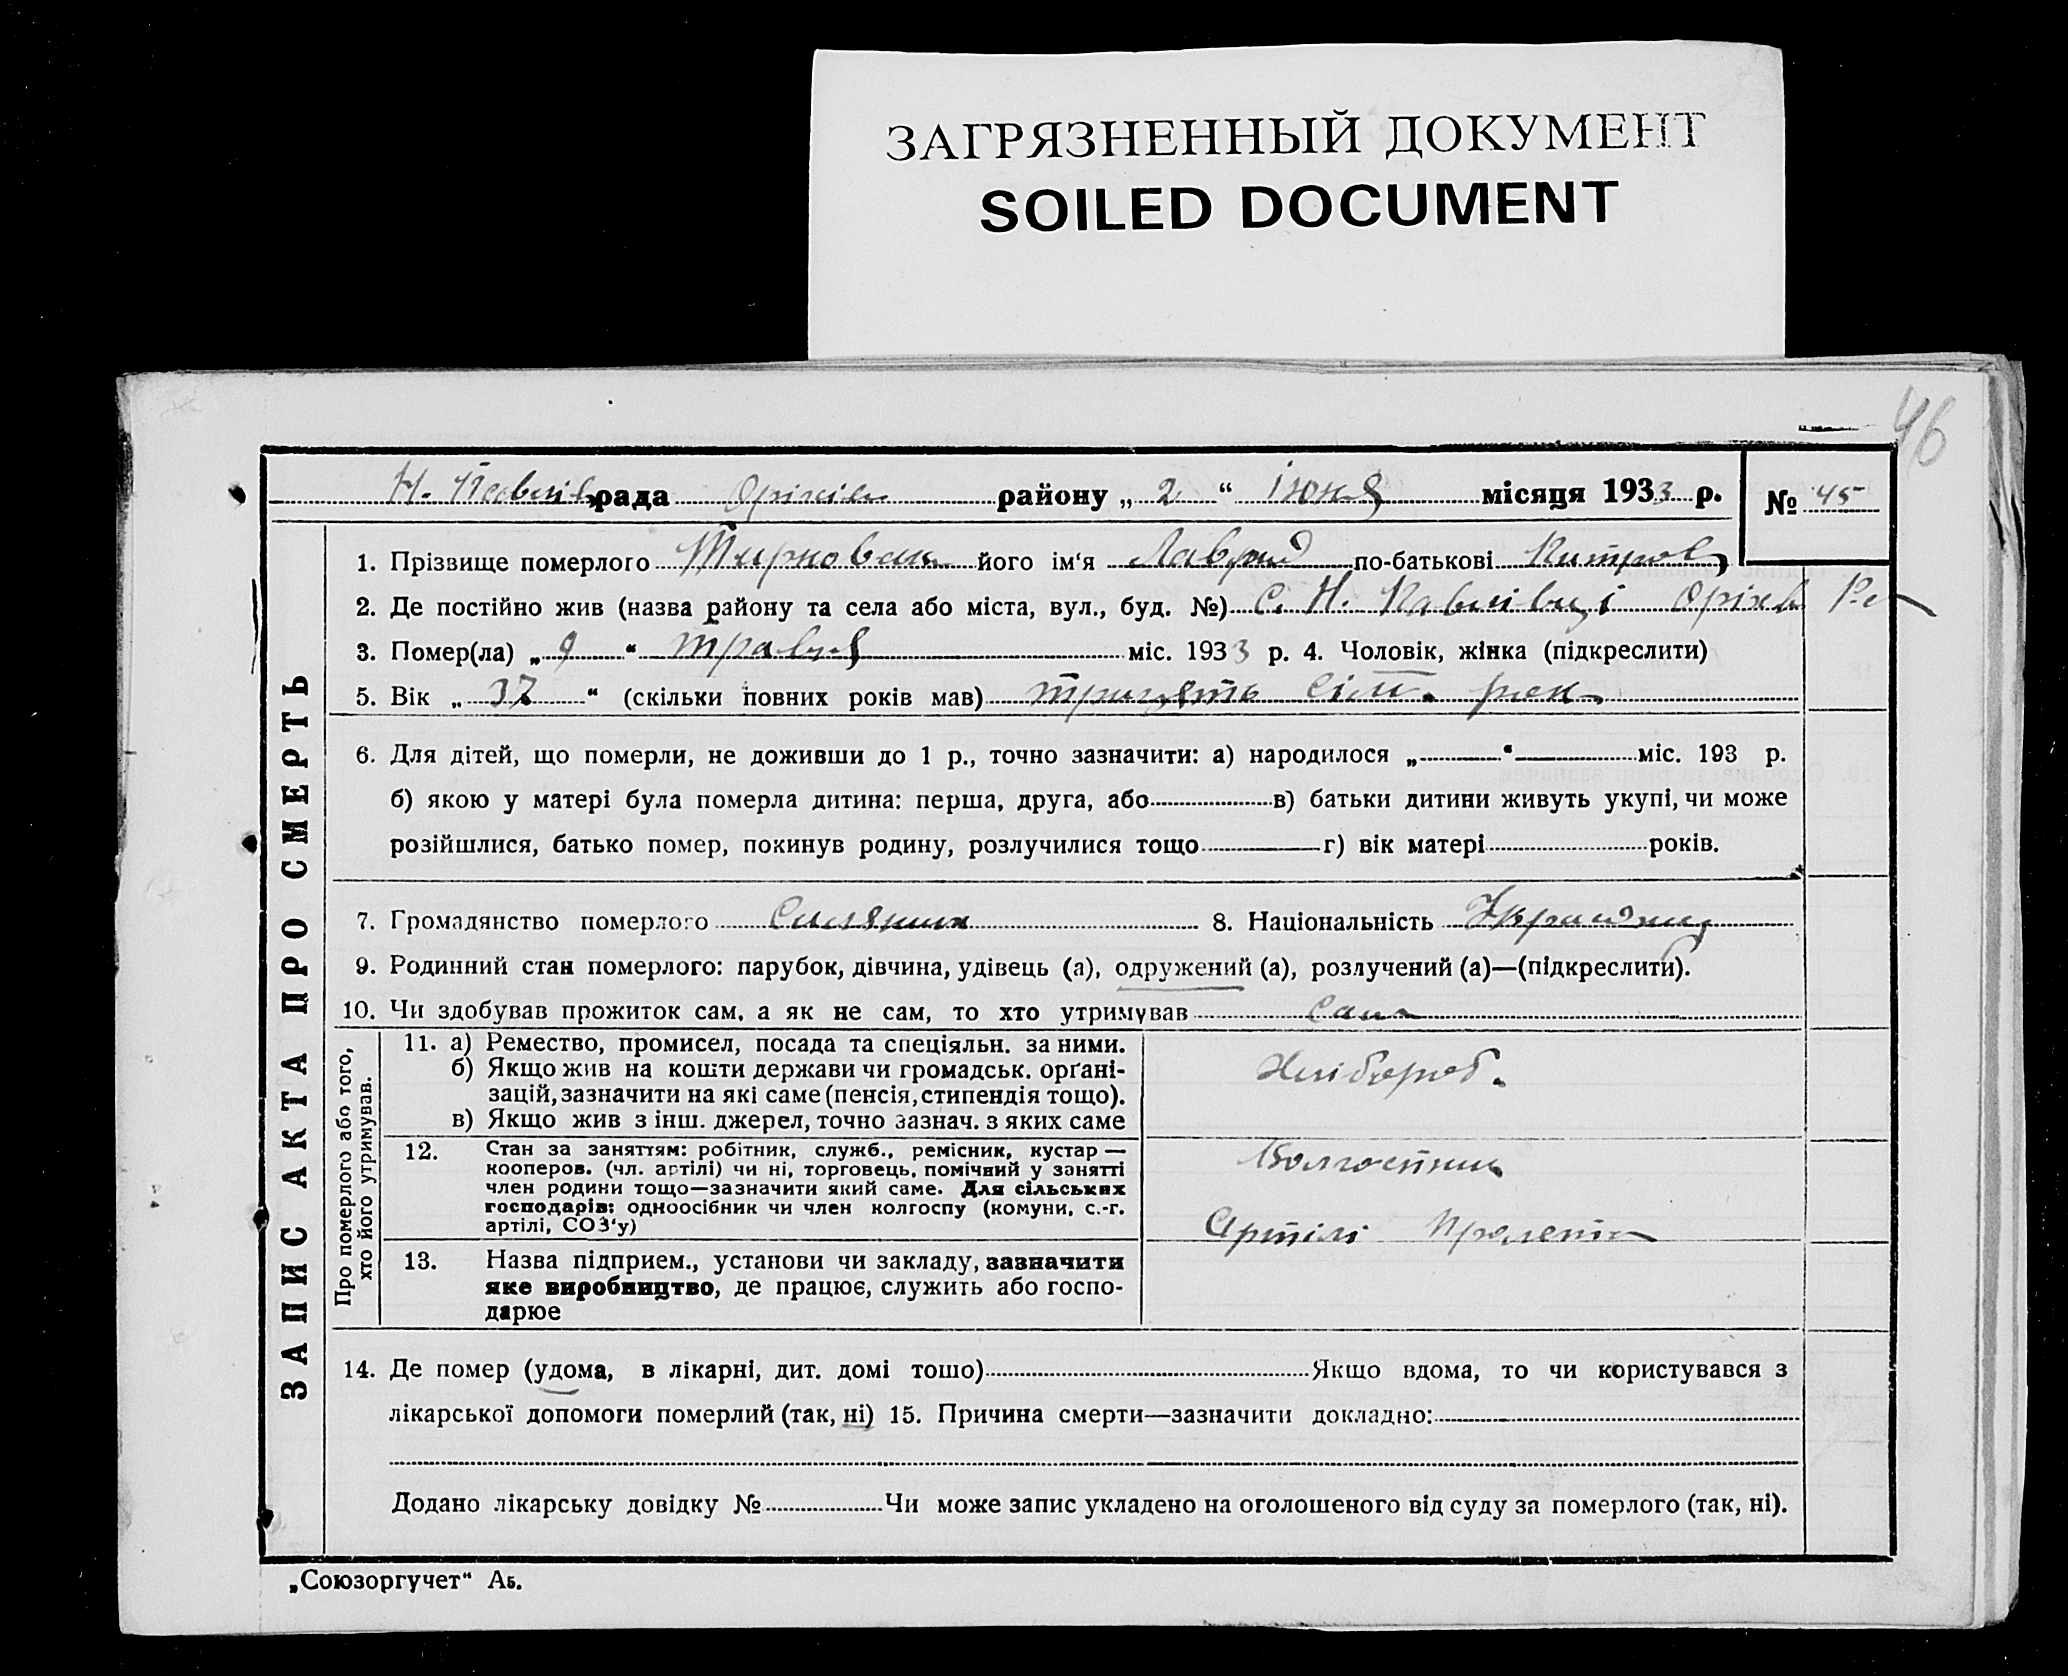 ЗАГРЯЗНЕННЫЙ ДОКУМЕНТ
SOILED DOCUMENT
46
Н. Павлів. рада Оріхів району „ 2 “ Июня місяця 1933 р. № 45
ЗАПИС АКТА ПРО СМЕРТЬ
1. Прізвище померлого його ім‘я по-батькові
2. Де постійно жив (назва району та села або міста, вул., буд. №) С. Н. Павлівці Оріхів
3. Помер(ла) „ 9 “ травня міс. 1933 р. 4. Чоловік, жінка (підкреслити)
5. Вік „ 37 “ (скільки повних років мав) трицять сім. рок.
6. Для дітей, що померли, не доживши до 1 р., точно зазначити: а) народилося „ “ міс. 193 р.
б) якою у матері була померла дитина: перша, друга, або в) батьки дитини живуть укупі, чи може
розійшлися, батько помер, покинув родину, розлучилися тощо г) вік матері років.
7. Громадянство померлого Силянин 8. Національність Українец
9. Родинний стан померлого: парубок, дівчина, удівець (а), одружений (а), розлучений (а)—(підкреслити).
10. Чи здобував прожиток сам, а як не сам, то хто утримував Сам
Про померлого або того,
хто його утримував.
11. а) Ремество, промисел, посада та спеціяльн. за ними.
б) Якщо жив на кошти держави чи громадськ. орґані-
зацій, зазначити на які саме (пенсія, стипендія тощо).
в) Якщо жив з інш. джерел, точно зазнач. з яких саме
Хлібороб.
12. Стан за заняттям: робітник, служб., ремісник, кустар —
кооперов. (чл. артілі) чи ні, торговець, помічний у занятті
член родини тощо—зазначити який саме. Для сільських
господарів: одноосібник чи член колгоспу (комуни, с.-г.
артілі, СОЗ‘у)
Колгоспник
Артілі
13. Назва підприєм., установи чи закладу, зазначити
яке виробництво, де працює, служить або госпо-
дарює
14. Де помер (удома, в лікарні, дит. домі тошо) Якщо вдома, то чи користувався з
лікарської допомоги померлий (так, ні) 15. Причина смерти—зазначити докладно:
Додано лікарську довідку № Чи може запис укладено на оголошеного від суду за померлого (так, ні).
„Союзоргучет“ Аб.